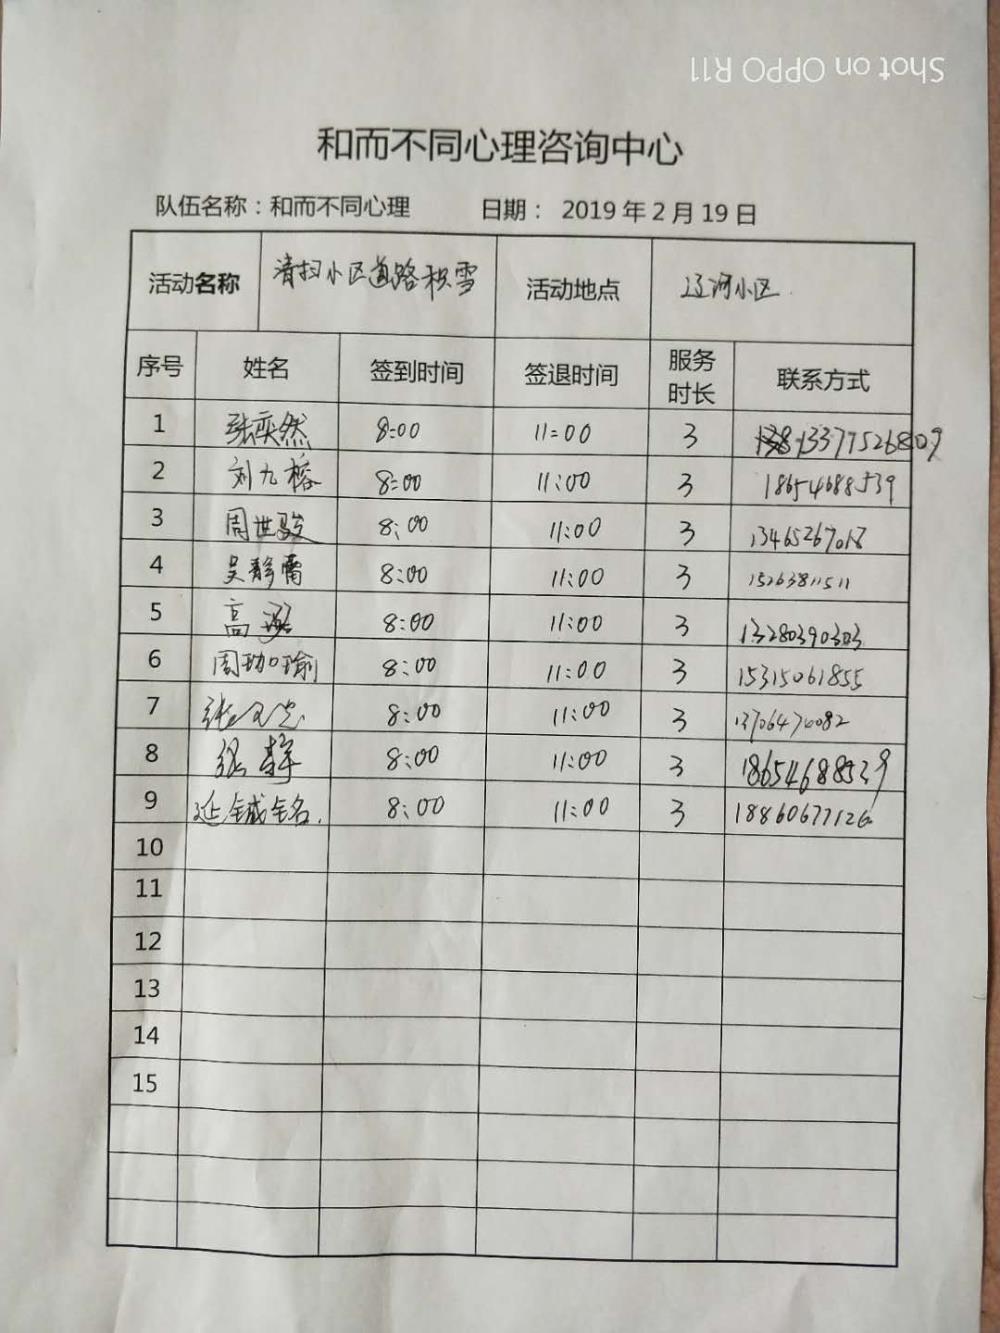 Shot on OPPO R11
和而不同心理咨询中心
队伍名称：和而不同心理 日期： 2019年2月19日
活动名称 清扫小区道路积雪 活动地点 辽河小区
序号 姓名 签到时间 签退时间 服务时长 联系方式
1 张奕然 8:00 11:00 3 13377526809
2 刘九榕 8:00 11:00 3 18654688539
3 周世骏 8:00 11:00 3
4 吴静雷 8:00 11:00 3 15263811511
5 高 8:00 11:00 3 13280390303
6 周珈瑜 8:00 11:00 3 15315061855
7 张 8:00 11:00 3 13706474082
8 张静 8:00 11:00 3 18654688539
9 延铖铭. 8:00 11:00 3 18860677126
10
11
12
13
14
15